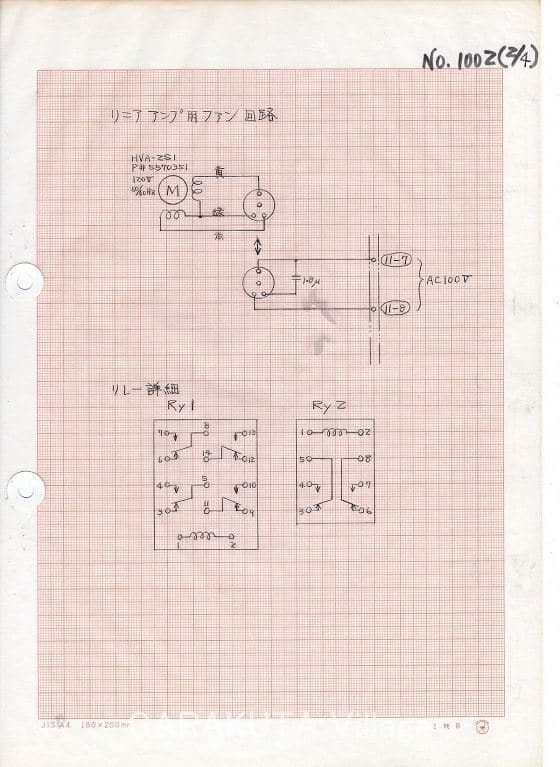 No. 1002(2/4)
リニアアンプ用ファン回路
HVA-2S1
P# 5570351
120V
50/60Hz
M
黄
緑
赤
11-7
1.0μ
AC100V
11-8
リレー詳細
Ry1
Ry2
8
7 13
6 14 12
5
4 10
3 11 9
1 2
1 2
5 8
4 7
3 6
JIS A4 180×250mm
GARAKUTA Village